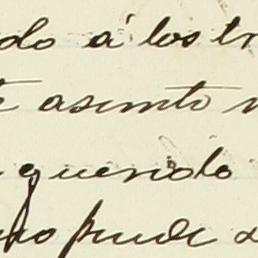 do á los tr
asunto
querido
pude